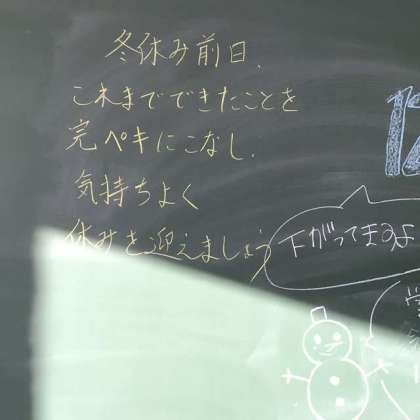 冬休み前日、
これまでできたことを
完ペキにこなし、
気持ちよく
休みを迎えましょう
下がってきるよ
12
学